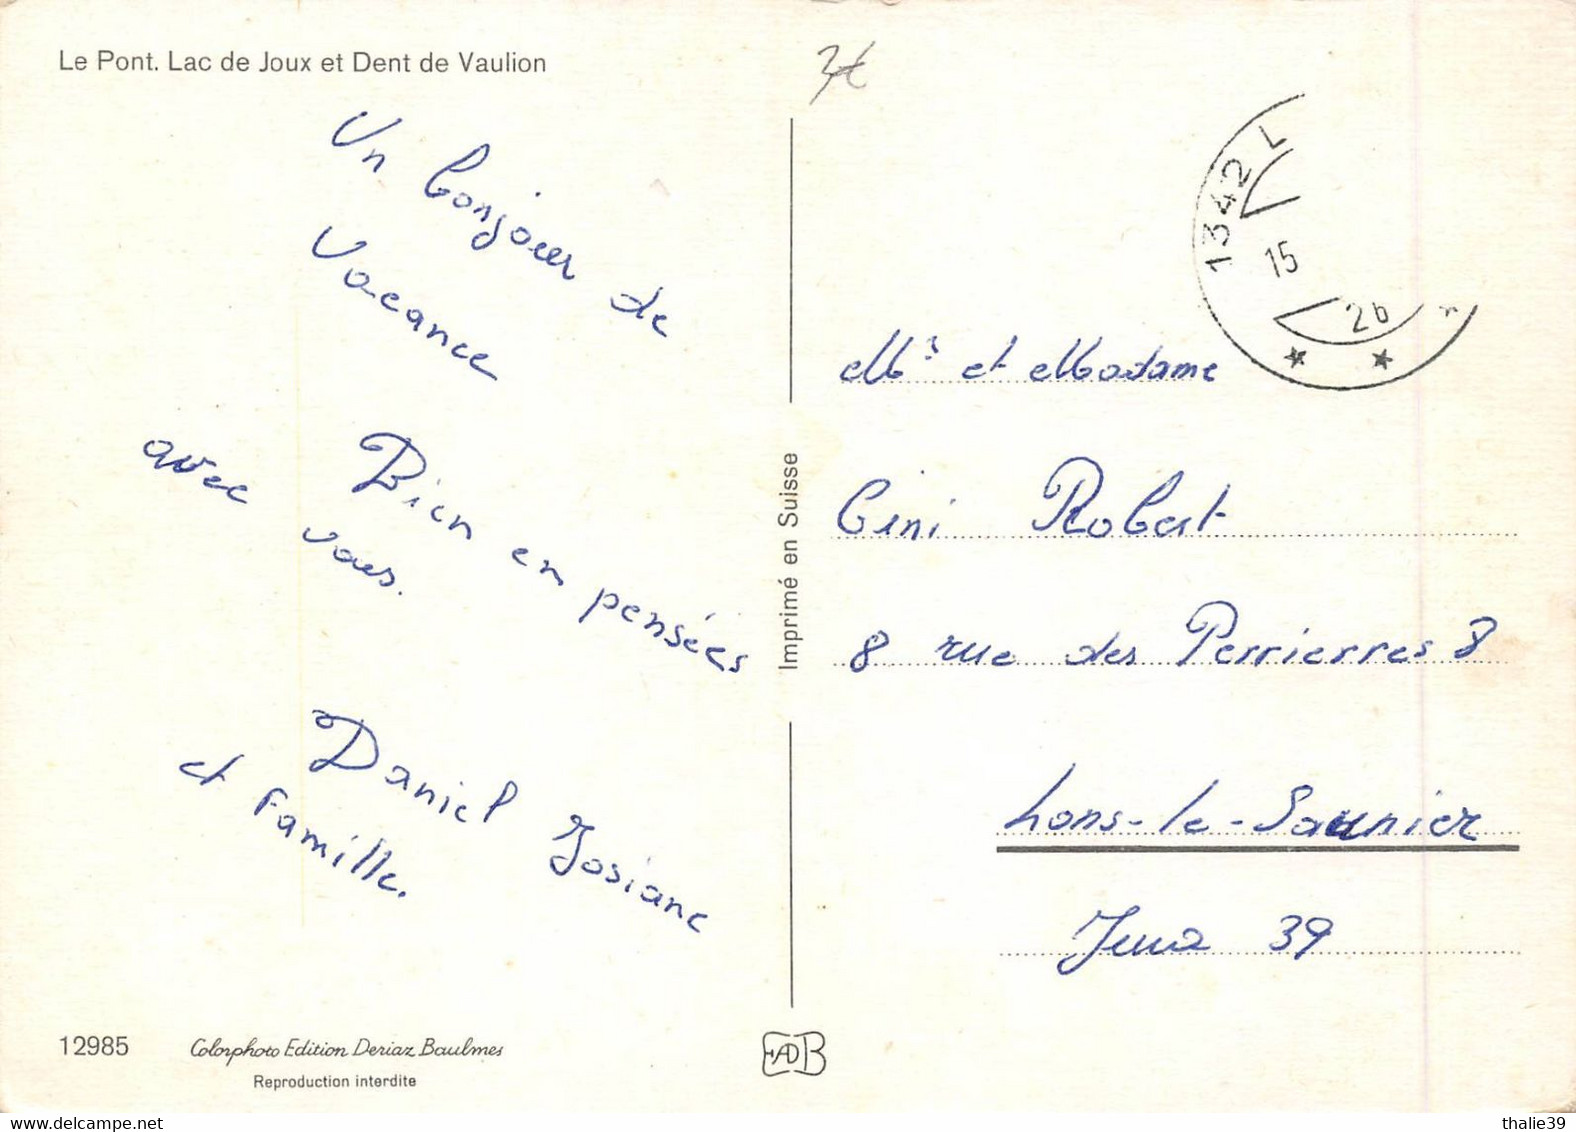 Le Pont. Lac de Joux et Dent de Vaulion
3€
Un bonjour de
vacance
Bien en pensées
avec vous.
Daniel Josiane
et famille.
12985
Colorphoto Edition Deriaz Baulmes
Reproduction interdite
Imprimé en Suisse
EADB
1342 L
15
26
Mr et Madame
Cini Robert
8 rue des Perrierres 8
Lons-le-Saunier
Jura 39
thalie39